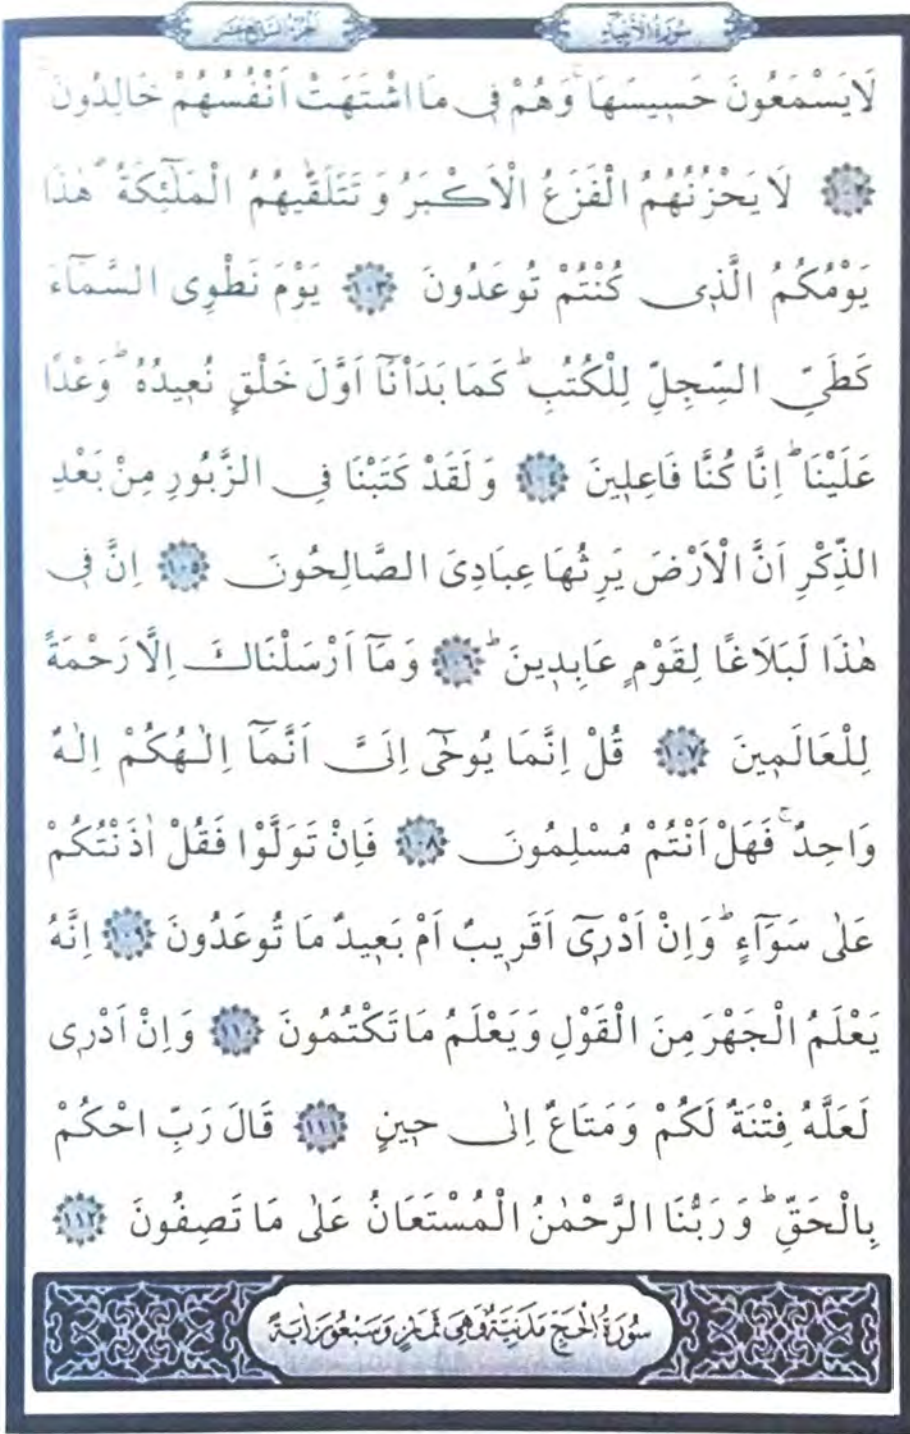 سُورَةُ الْاَنْبِيَاءِ
اَلْجُزْءُ السَّابِعَ عَشَرَ
لَا يَسْمَعُونَ حَسٖيسَهَاۚ وَهُمْ فٖى مَا اشْتَهَتْ اَنْفُسُهُمْ خَالِدُونَۚ
﴿١٠٢﴾ لَا يَحْزُنُهُمُ الْفَزَعُ الْاَكْبَرُ وَ تَتَلَقّٰيهُمُ الْمَلٰٓئِكَةُؕ هٰذَا
يَوْمُكُمُ الَّذٖى كُنْتُمْ تُوعَدُونَ ﴿١٠٣﴾ يَوْمَ نَطْوِى السَّمَٓاءَ
كَطَيِّ السِّجِلِّ لِلْكُتُبِؕ كَمَا بَدَاْنَٓا اَوَّلَ خَلْقٍ نُعٖيدُهُؕ وَعْدًا
عَلَيْنَاؕ اِنَّا كُنَّا فَاعِلٖينَ ﴿١٠٤﴾ وَ لَقَدْ كَتَبْنَا فِى الزَّبُورِ مِنْ بَعْدِ
الذِّكْرِ اَنَّ الْاَرْضَ يَرِثُهَا عِبَادِىَ الصَّالِحُونَ ﴿١٠٥﴾ اِنَّ فٖى
هٰذَا لَبَلَاغًا لِقَوْمٍ عَابِدٖينَؕ ﴿١٠٦﴾ وَمَٓا اَرْسَلْنَاكَ اِلَّا رَحْمَةً
لِلْعَالَمٖينَ ﴿١٠٧﴾ قُلْ اِنَّمَا يُوحٰٓى اِلَىَّ اَنَّمَٓا اِلٰهُكُمْ اِلٰهٌ
وَاحِدٌۚ فَهَلْ اَنْتُمْ مُسْلِمُونَ ﴿١٠٨﴾ فَاِنْ تَوَلَّوْا فَقُلْ اٰذَنْتُكُمْ
عَلٰى سَوَٓاءٍؕ وَاِنْ اَدْرٖٓى اَقَرٖيبٌ اَمْ بَعٖيدٌ مَا تُوعَدُونَ ﴿١٠٩﴾ اِنَّهُ
يَعْلَمُ الْجَهْرَ مِنَ الْقَوْلِ وَيَعْلَمُ مَا تَكْتُمُونَ ﴿١١٠﴾ وَاِنْ اَدْرٖى
لَعَلَّهُ فِتْنَةٌ لَكُمْ وَمَتَاعٌ اِلٰى حٖينٍ ﴿١١١﴾ قَالَ رَبِّ احْكُمْ
بِالْحَقِّؕ وَ رَبُّنَا الرَّحْمٰنُ الْمُسْتَعَانُ عَلٰى مَا تَصِفُونَ ﴿١١٢﴾
سُورَةُ الْحَجِّ مَدَنِيَّةٌ وَهِىَ ثَمَانٍ وَسَبْعُونَ اٰيَةً